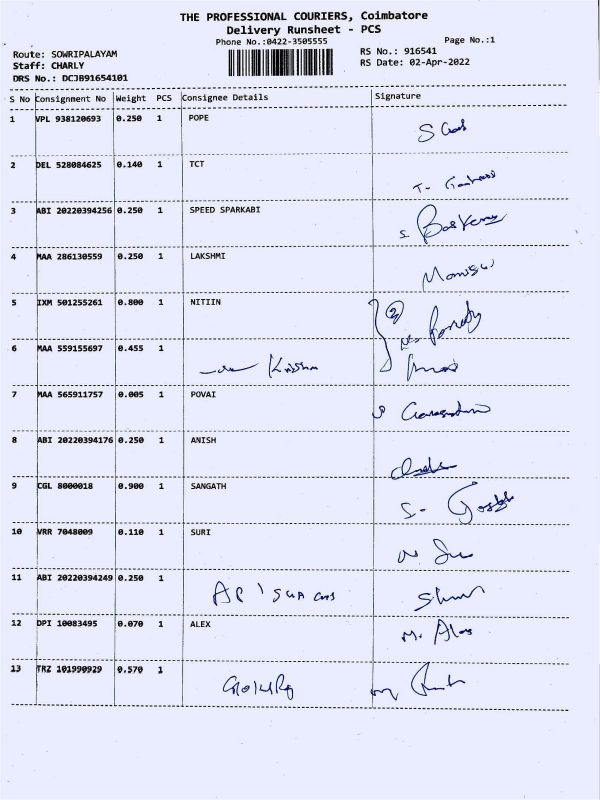 THE PROFESSIONAL COURIERS, Coimbatore
Delivery Runsheet - PCS
Phone No.:0422-3505555
Page No.:1
Route: SOWRIPALAYAM
RS No.: 916541
Staff: CHARLY
RS Date: 02-Apr-2022
DRS No.: DCJB91654101
S No Consignment No Weight PCS Consignee Details Signature
1 VPL 938120693 0.250 1 POPE
2 DEL 528084625 0.140 1 TCT
3 ABI 20220394256 0.250 1 SPEED SPARKABI
4 MAA 286130559 0.250 1 LAKSHMI
5 IXM 501255261 0.800 1 NITIIN
6 MAA 559155697 0.455 1 Krishna
7 MAA 565911757 0.005 1 POVAI
8 ABI 20220394176 0.250 1 ANISH
9 CGL 8000018 0.900 1 SANGATH
10 VRR 7048009 0.110 1 SURI
11 ABI 20220394249 0.250 1
12 DPI 10083495 0.070 1 ALEX M. Alex
13 TRZ 101990929 0.570 1